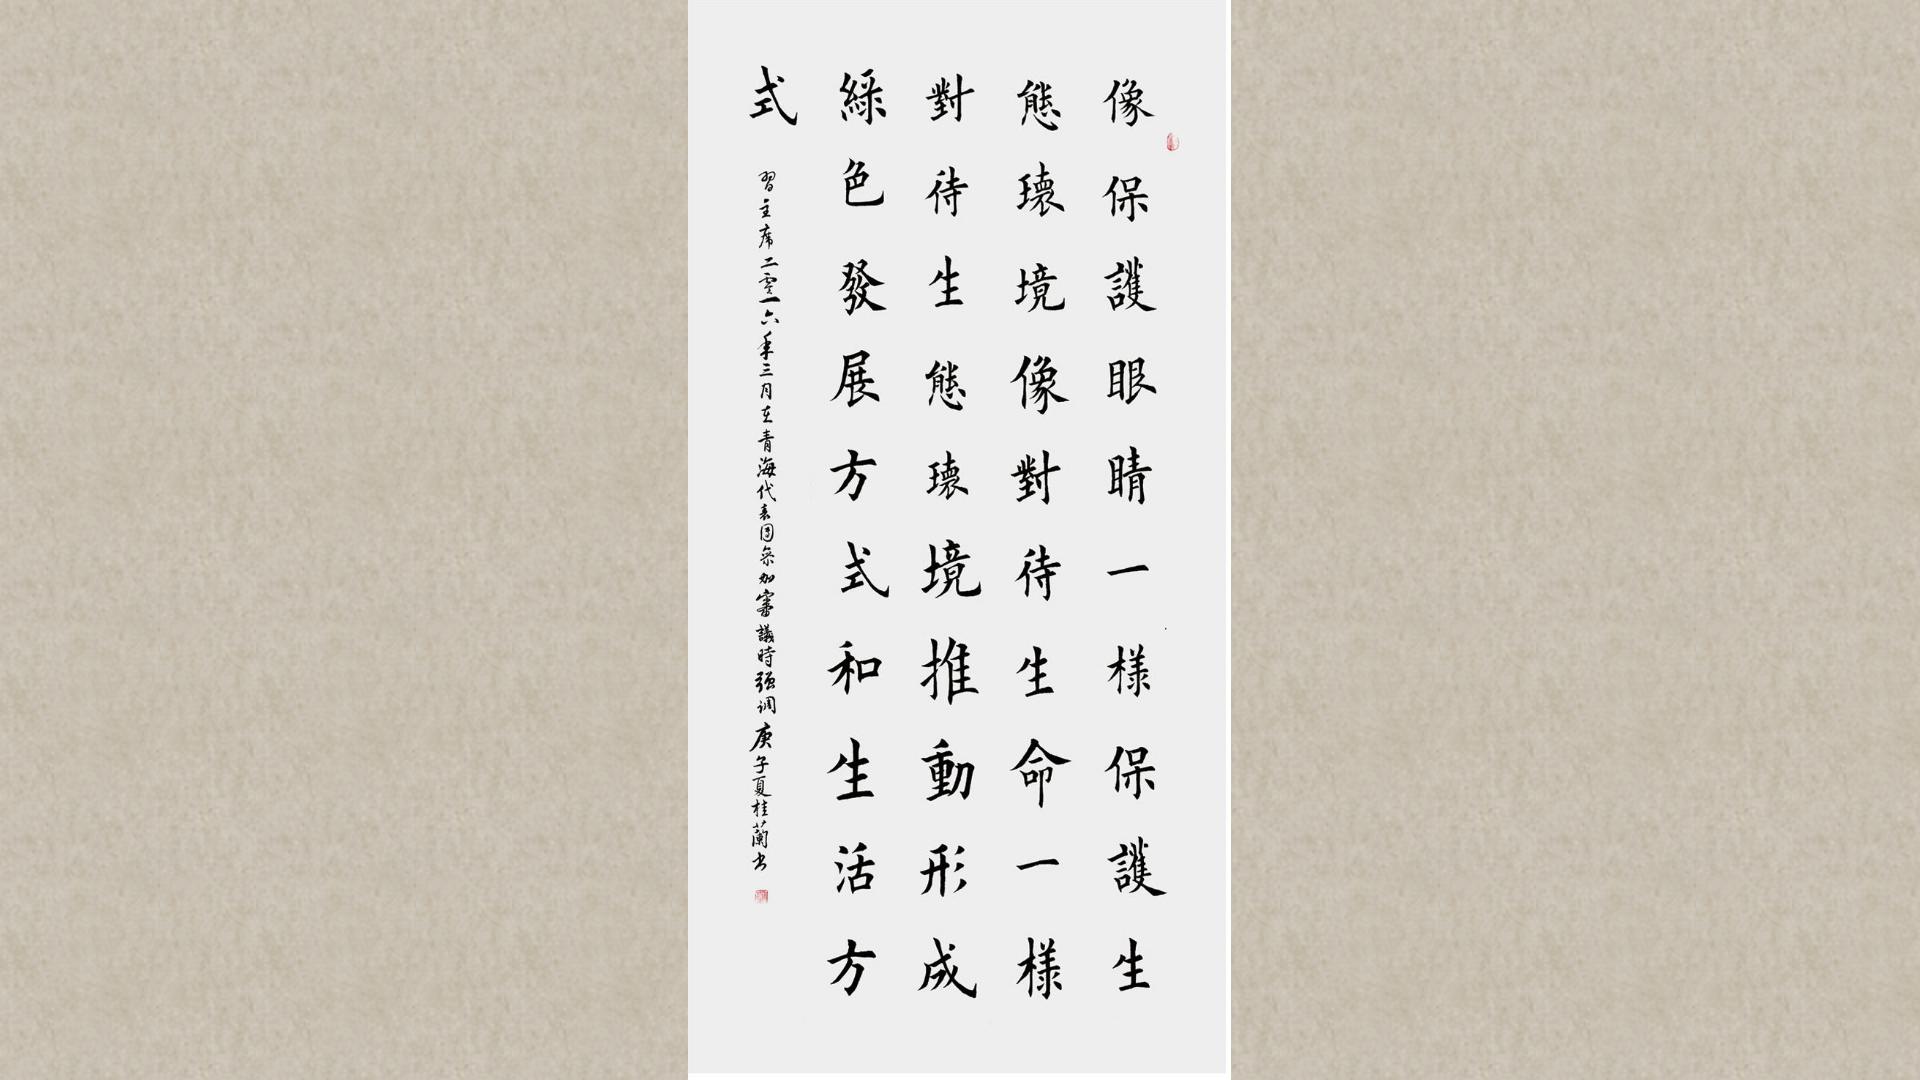 像保護眼睛一樣保護生
態環境像對待生命一樣
對待生態環境推動形成
綵色發展方式和生活方
式
習主席二零一六年三月在青海代表团參加審議時强调
庚子夏桂蘭书